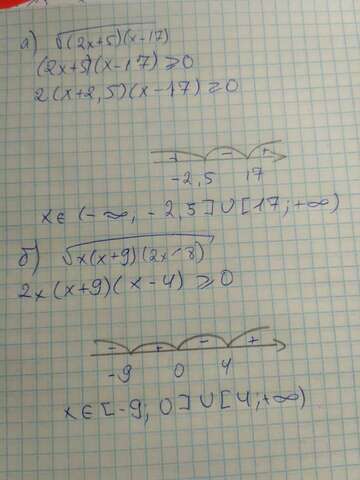 а) √(2x+5)(x-17)
(2x+5)(x-17)≥0
2(x+2,5)(x-17)≥0
+ - +
-2,5 17
x∈(-∞, -2,5]∪[17;+∞)
б) √x(x+9)(2x-8)
2x(x+9)(x-4)≥0
- + - +
-9 0 4
x∈[-9; 0]∪[4;+∞)